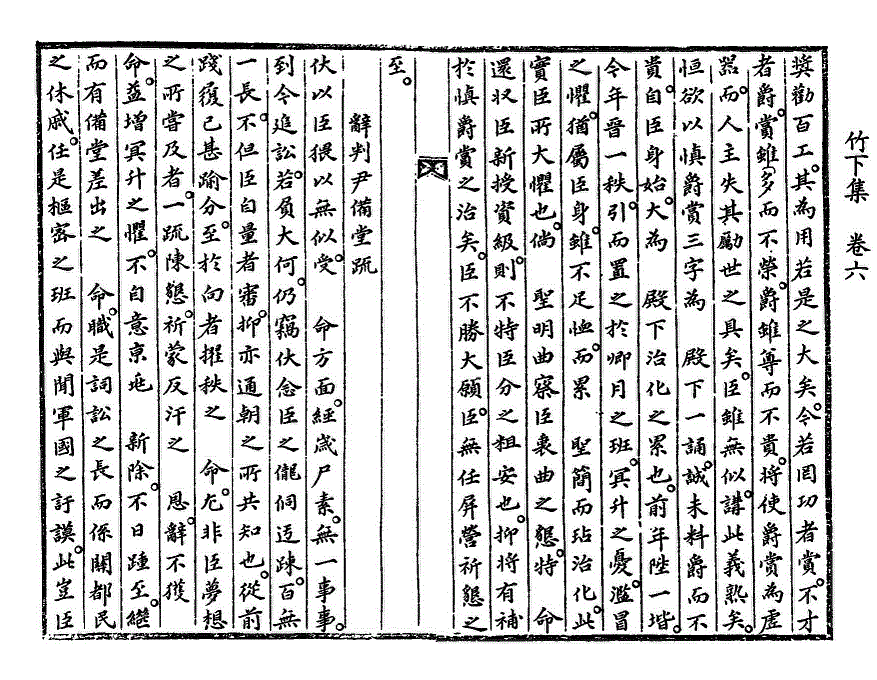 竹下集 卷六
奬勸百工。其為用若是之大矣。今若罔功者賞。不才
者爵。賞雖多而不榮。爵雖尊而不貴。將使爵賞為虛
器。而人主失其勵世之具矣。臣雖無似。講此義熟矣。
恒欲以慎爵賞三字為 殿下一誦。誠未料爵而不
貴。自臣身始。大為 殿下治化之累也。前年陞一階。
今年晉一秩。引而置之於卿月之班。冥升之憂。濫冒
之懼。猶屬臣身。雖不足恤。而累 聖簡而玷治化。此
實臣所大懼也。倘 聖明曲察臣衷曲之懇。特 命
還收臣新授資級。則不特臣分之粗安也。抑將有補
於慎爵賞之治矣。臣不勝大願。臣無任屛營祈懇之
至。
辭判尹備堂疏
伏以臣猥以無似。受 命方面。經歲尸素。無一事事。
到今追訟。若負大何。仍竊伏念臣之儱侗迃疎。百無
一長。不但臣自量者審。抑亦通朝之所共知也。從前
踐履已甚踰分。至於向者擢秩之 命。尤非臣夢想
之所嘗及者。一疏陳懇。祈蒙反汗之 恩。辭不獲
命。益增冥升之懼。不自意京兆 新除。不日踵至。繼
而有備堂差出之 命。職是詞訟之長而係關都民
之休戚。任是樞密之班而與聞軍國之訏謨。此豈臣